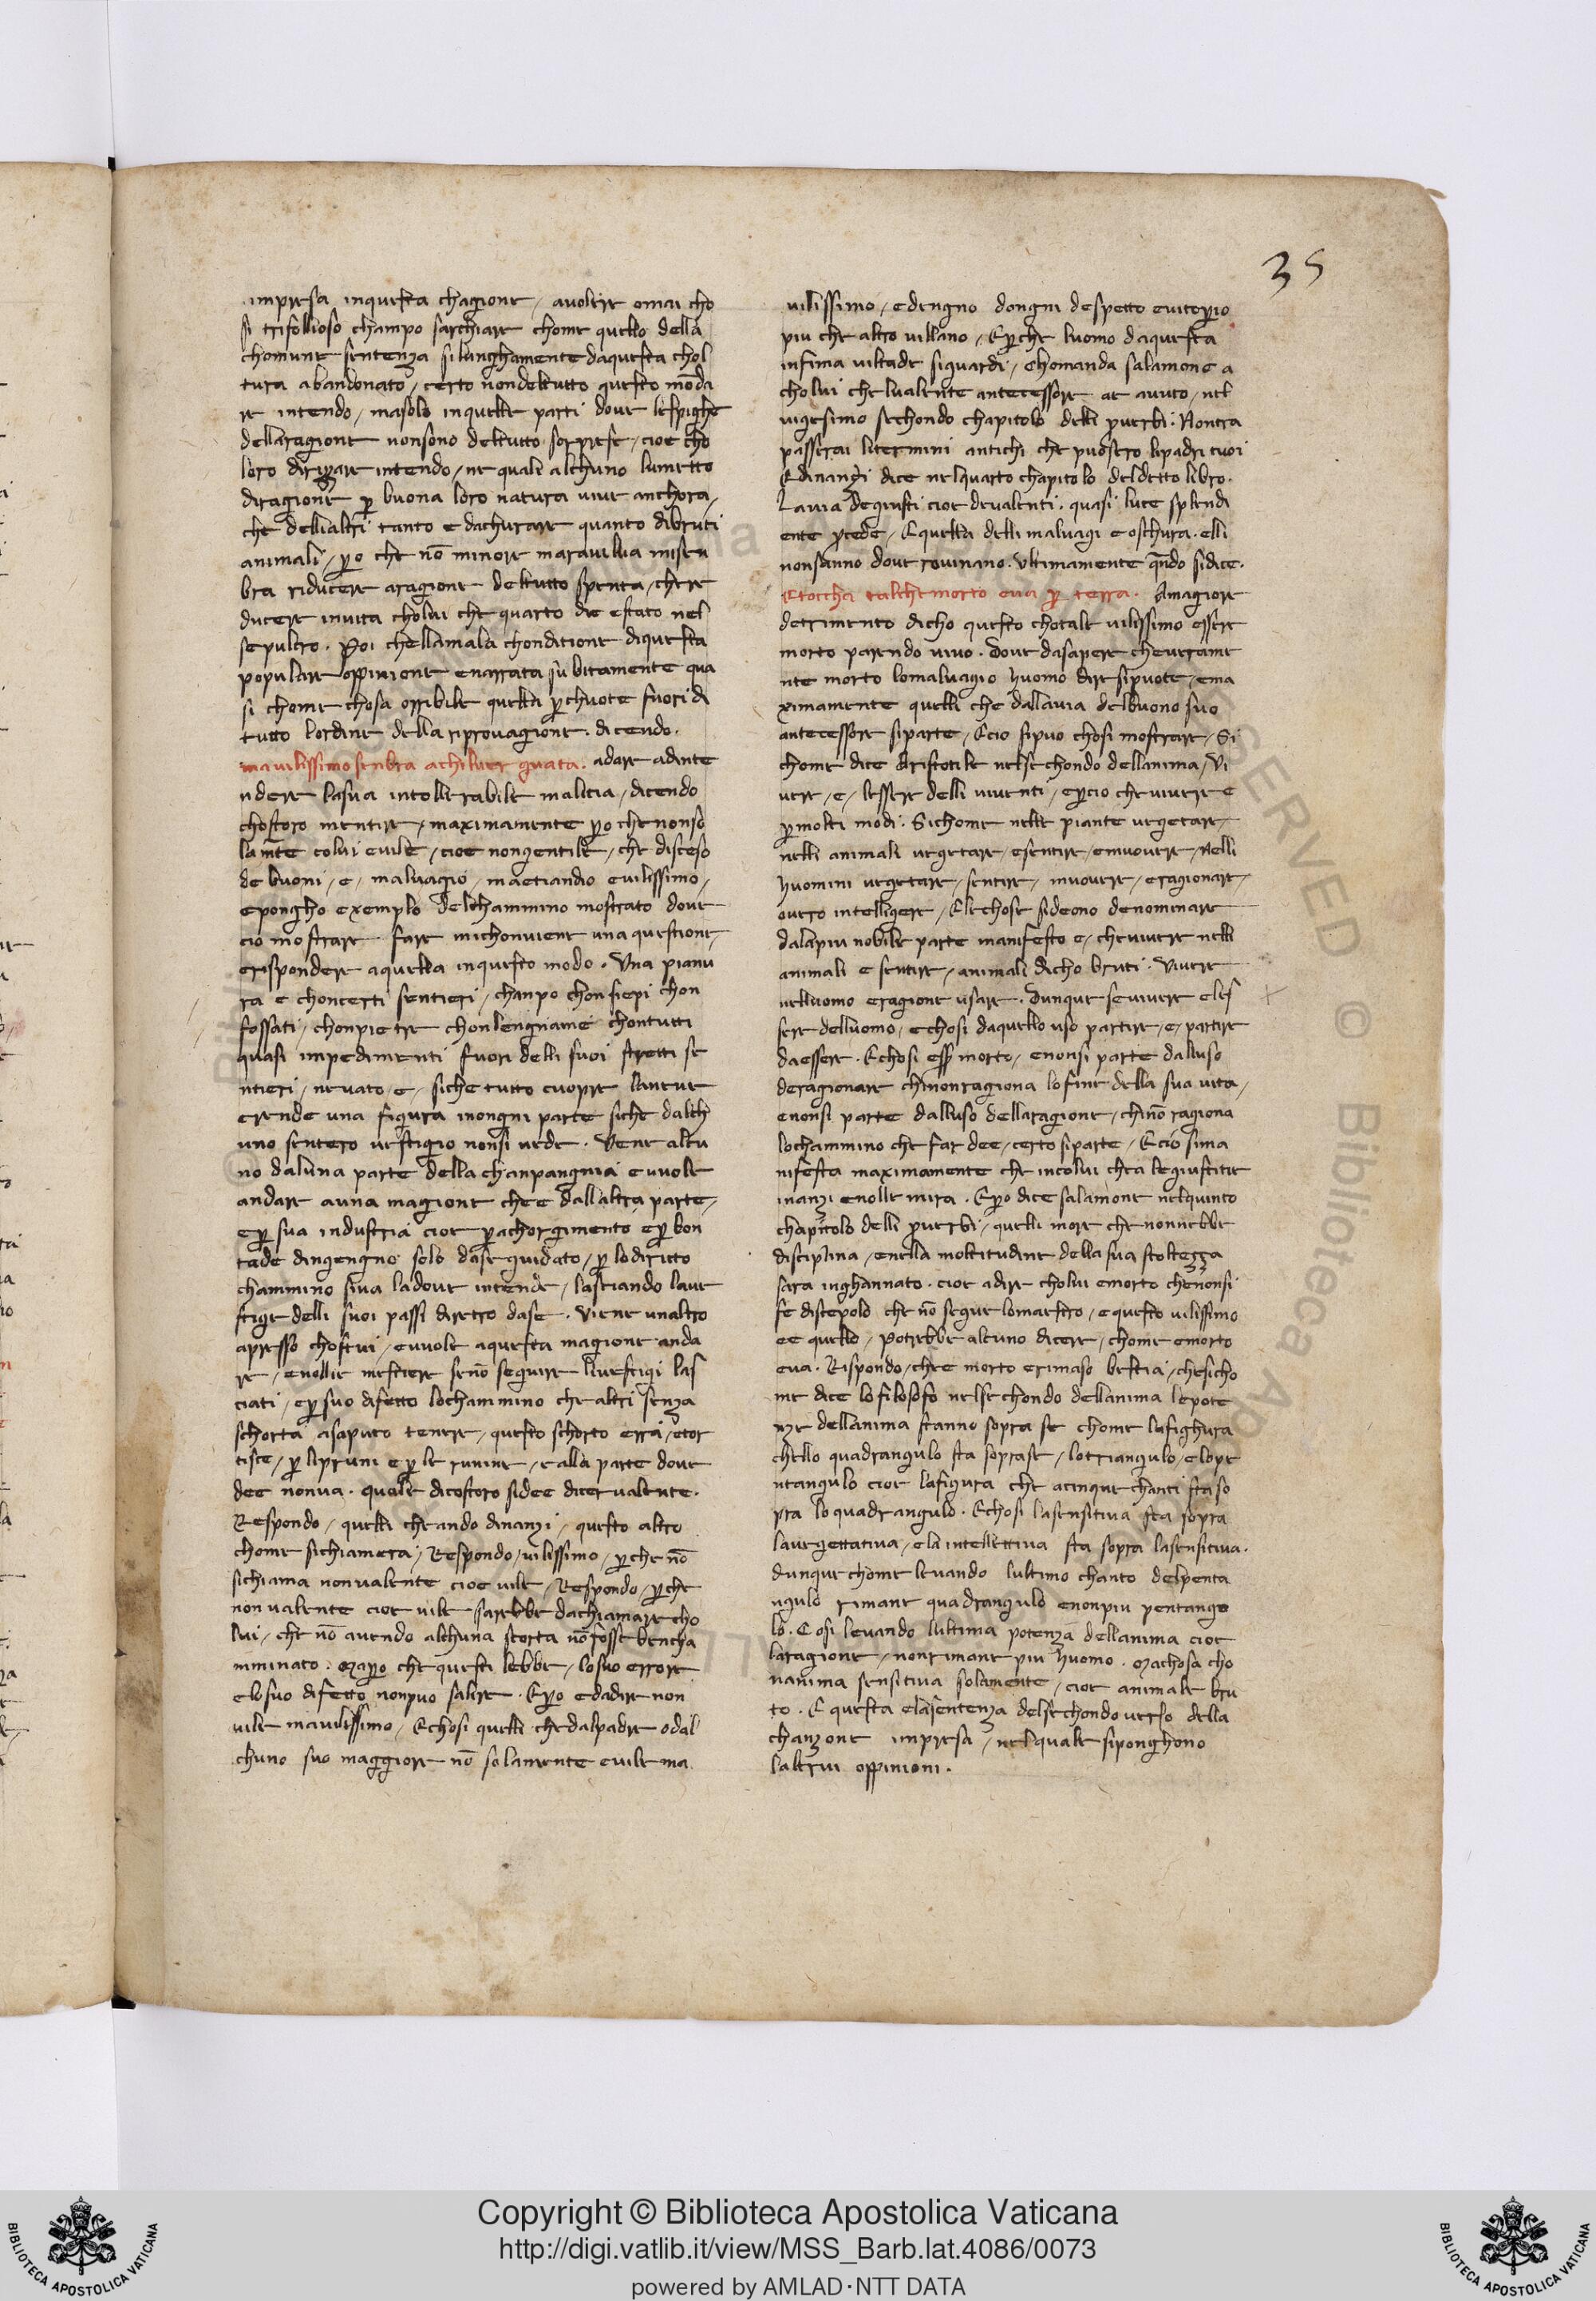 35
impresa inquesta chagione / avolere omai cho
si trifollioso champo sarchiare chome quello della
chomune sentenza silunghamente daquesta chol
tura abandonato / certo nondeltutto questo mōda
re intendo / masolo inquelle parti dove lespighe
dellaragione nonsono deltutto sorprese / cioe cho
loro dirizzare intendo / ne quali alchuno lumetto
diragione ꝑ buona loro natura vive anchora /
che dellialtri tanto e dachurare quanto dibruti
animali / ꝑo che nō minore maravillia misen
bra riducere aragione deltutto spenta / chere
ducere invita cholui che quarto die estato nel
sepulcro . Poi chellamala chonditione diquesta
populare oppinione enarrata subitamente qua
si chome chosa orribile quella ꝑchuote fuori di
tutto lordine della riprovagione . dicendo .
mavilissimo senbra achilver guata . adare adinte
ndere lasua intollerabile malicia / dicendo
chostoro mentire / maximamente ꝑo chenonso
lamēte colui evile / cioe nongentile / che disceso
de buoni / e / malvagio / maetiandio evilissimo /
epongho exemplo delchammino mostrato dove
cio mostrare fare michonviene una questione /
erispondere aquella inquesto modo . Una pianu
ra e choncerti sentieri / chanpo chonsiepi chon
fossati / chonpietre chonlengniame chontutti
quasi impedimenti fuori delli suoi stretti se
ntieri / nevato / e / siche tutto cuopre laneve
erende una figura inongni parte siche dalch
uno sentero vestigio nonsi vede . Vene alcu
no daluna parte della chanpangnia evvole
andare auna magione chee dallaltra parte /
eꝑ sua industria cioe ꝑachorgimento eꝑ bon
tade dingengno solo dase guidato / ꝑ lodiritto
chammino siva ladove intende / lasciando lave
stige delli suoi passi diretro dase . Viene unaltro
apresso chostui / evvole aquesta magione anda
re / enollie mestiere senō seguire livestigi las
ciati / eꝑ suo difetto lochammino che altri senza
schorta asaputo tenere / questo schorto erra / etor
tisce / ꝑ lipruni eꝑ le ruine / ealla parte dove
dee nonva . quale dicostoro sidee dicervalente .
Respondo / quelli che ando dinanzi / questo altro
chome sichiamera / Respondo / vilissimo / ꝑche nō
sichiama nonvalente cioe vile / Respondo / ꝑche
nonvalente cioe vile sarebbe dachiamare cho
lui / che nō avendo alchuna scorta nō fosse bencha
mminato . Maꝑo che questi lebbe / losuo errore
elosuo difetto nonpuo salire . Eꝑo edadire non
vile mavilissimo / Echosi quelli chedalpadre odal
chuno suo maggiore nō solamente evile ma
vilissimo / edengno dongni despetto evitoꝑio
piu che altro villano / Eꝑche luomo daquesta
infima viltade siguardi / Chomanda salamone a
cholui chelvalente antecessore ae avuto / nel
vigesimo sechondo chapitolo delli ꝓverbi . Nontra
passerai litermini antichi che puosero lipadri tuoi
Edinanzi dice nelquarto chapitolo deldetto libro .
Lavia degiusti cioe devalenti . quasi luce splendi
ente ꝓcede / Equella delli malvagi e oschura . elli
nonsanno dove rovinano . Ultimamente qn̄do sidice .
Etoccha talchemorto eva ꝑ terra . Amagiore
detrimento dicho questo chotale vilissimo essere
morto parendo vivo . Dove dasapere cheverame
nte morto lomalvagio huomo dire sipuote / ema
ximamente quelli che dallavia delbuono suo
antecessore siparte / Ecio sipuo chosi mostrare / Si
chome dice Aristotile nelsechondo dellanima / Vi
vere / e / lessere delli viventi / eꝑcio chevivere e
ꝑmolti modi . Sichome nelle piante vegetare /
nelli animali vegetare / esentire / emuovere / Nelli
huomini vegetare / sentire / muovere / eragionare /
overo intelligere / Elechose sideono denominare
dalapiu nobile parte manifesto e / chevivere nelli
animali e sentire / animali dicho bruti . Vivere
nelluomo eragione usare . Dunque sevivere eles
sere delluomo / echosi daquello uso partire / e / partire
daessere . Echosi ess̄ morto / enonsi parte dalluso
deragionare chinonragiona lofine della sua vita /
enonsi parte dalluso dellaragione / chinō ragiona
lochammino che far dee / certo siparte / Ecio sima
nifesta maximamente che incolui cha levestigie
inanzi enolle mira . Eꝑo dice salamone nelquinto
chapitolo delli ꝓverbi / quelli more che nonnebbe
disciplina / enella moltitudine della sua stoltezza
sara inghannato . cioe adire cholui emorto chenonsi
fe discepolo che nō segue lomaestro / equesto vilissimo
ee quello / potrebbe alcuno dicere / chome emorto
eva . Rispondo / chee morto erimaso bestia / chesicho
me dice lofilosofo nelsechondo dellanima lepote
nze dellanima stanno sopra se chome lafighura
chello quadrangulo sta soprase / lotriangulo / elope
ntangulo cioe lafigura che acinque chanti staso
pra loquadrangulo . Echosi lasensitiva sta sopra
lavegettativa / ela intellettiva sta sopra lasensitiva .
dunque chome levando lultimo chanto delpenta
ngulo rimane quadrangulo enonpiu pentango
lo . Cosi levando lultima potenza dellanima cioe
laragione / nonrimane piu huomo . Machosa cho
nanima sensitiva solamente / cioe animale bru
to . E questa elasentenza delsechondo verso della
chanzone impresa / nelquale siponghono
laltrui oppinioni .
Copyright © Biblioteca Apostolica Vaticana
http://digi.vatlib.it/view/MSS_Barb.lat.4086/0073
powered by AMLAD·NTT DATA
BIBLIOTECA APOSTOLICA VATICANA
BIBLIOTECA APOSTOLICA VATICANA